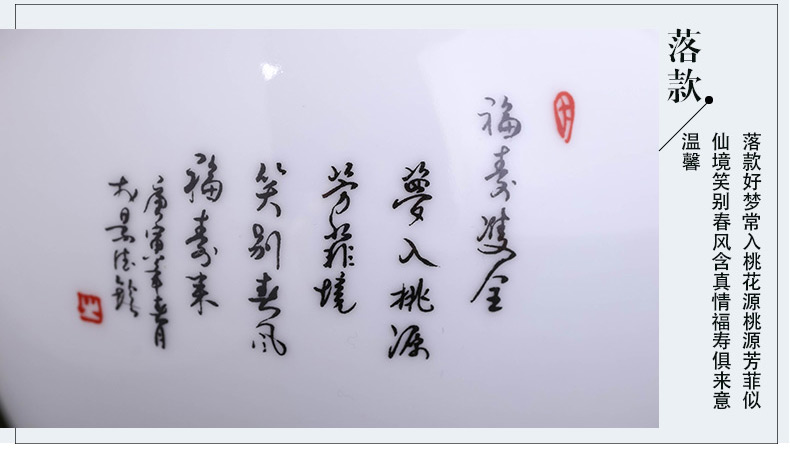 落款
落款好梦常入桃花源桃源芳菲似
仙境笑别春风含真情福寿俱来意
温馨
福寿雙全
夢入桃源
芳菲境
笑别春风
福寿来
庚寅年春月
景德鎮